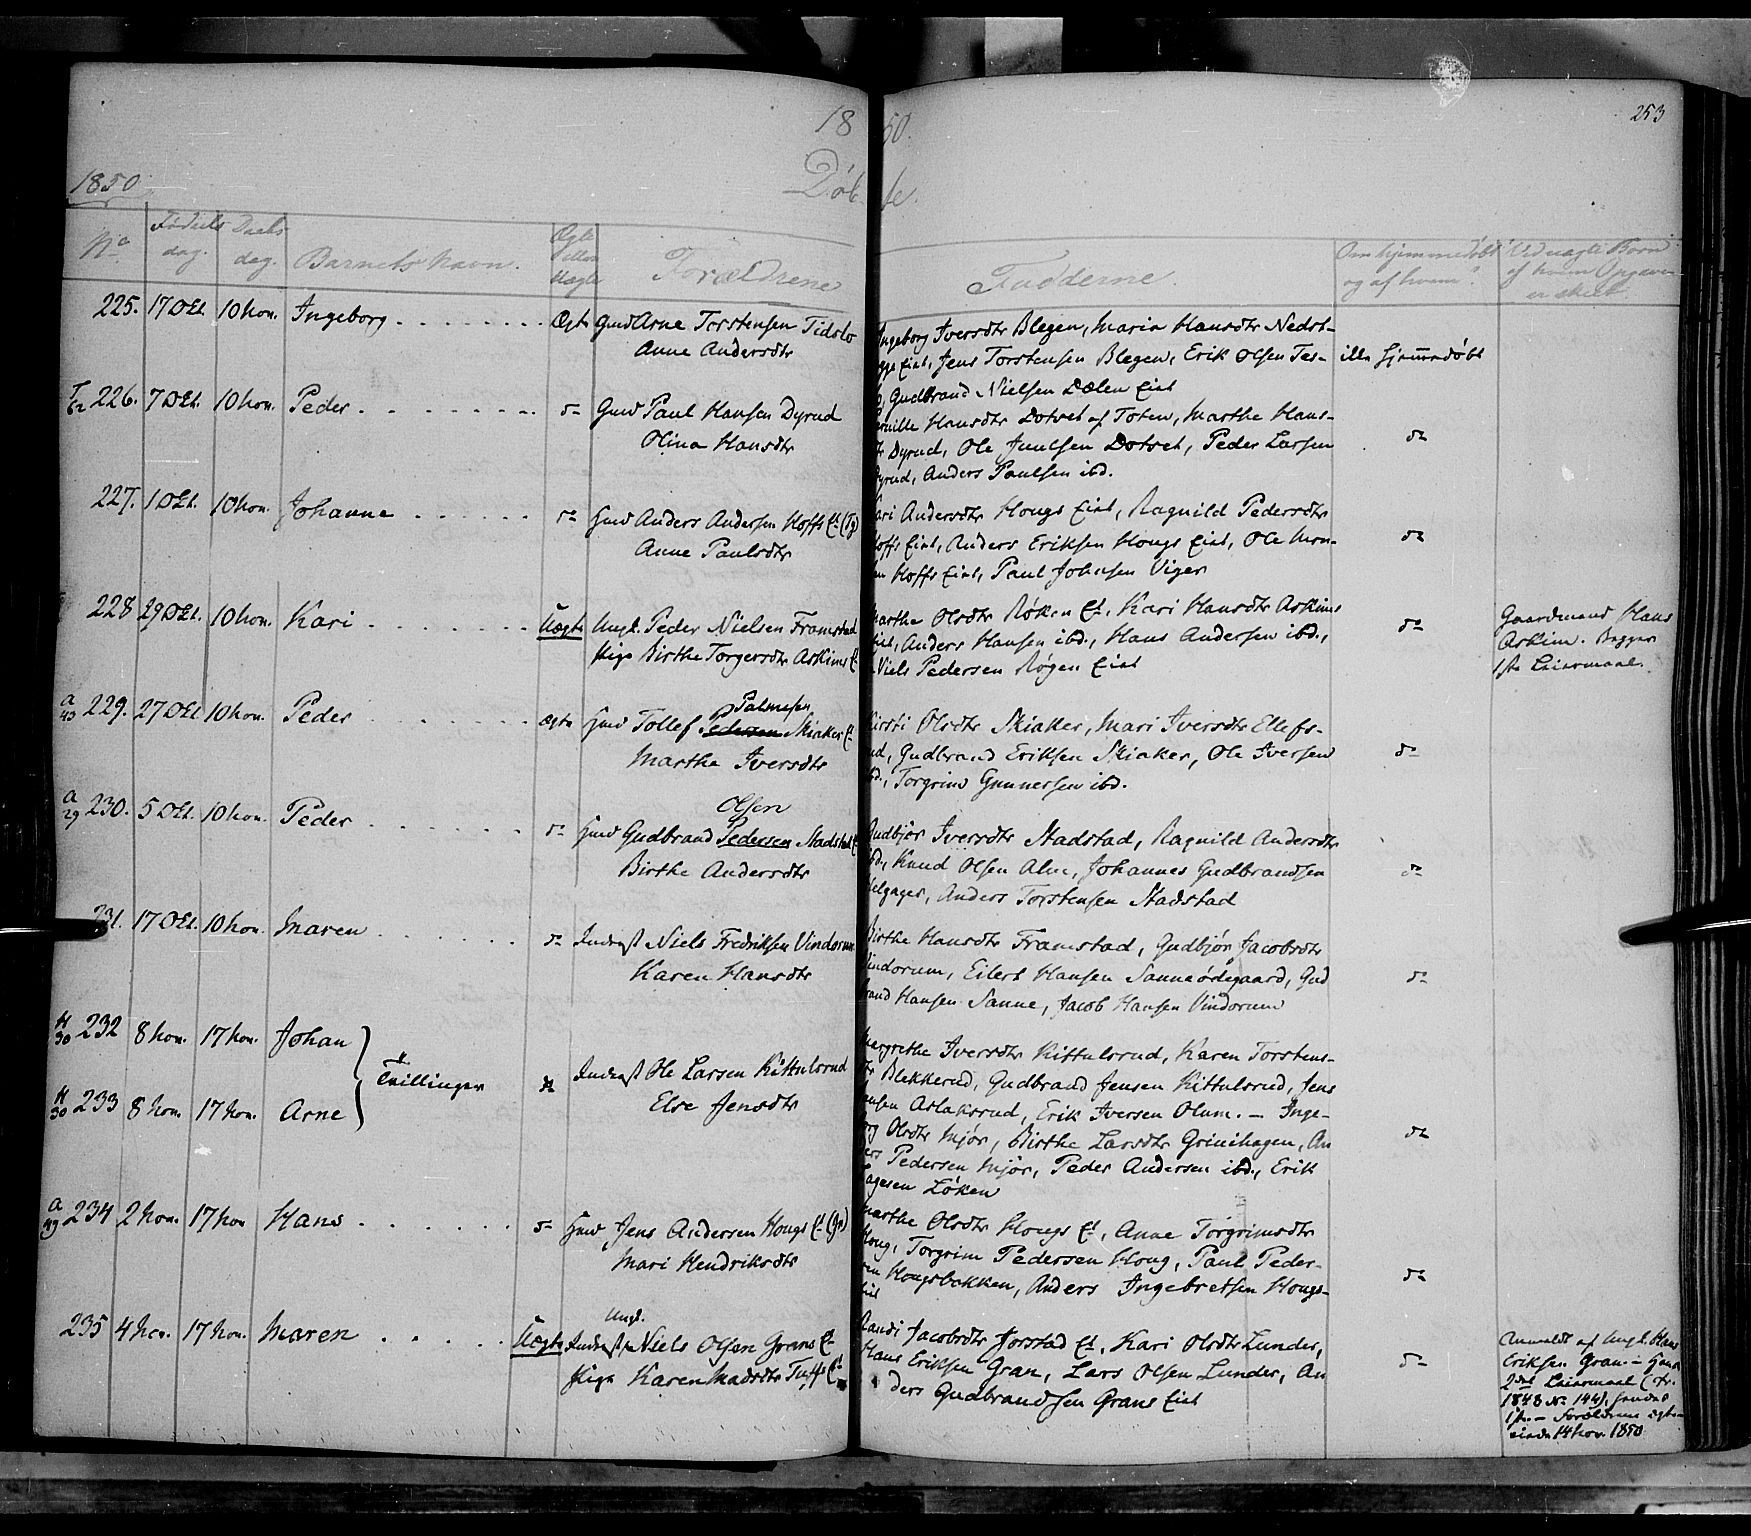 1850.
253
1850
Døbte.
No
Fødsels dag.
Daabs dag.
Barnets Navn.
Ægte eller Uægte
Forældrene
Fadderne.
Om hjemmedøbt og af hvem?
Ved uægte Børn af hvem Opgaven er skeet.
225. 17 Okt. 10 Nov. Ingeborg Ægte Gmd Arne Torstensen Tidslo
Anne Andersdtr
Ingeborg Iversdtr Blegen, Maria Hansdtr Nedst-
Eiet, Jens Torstensen Blegen, Erik Olsen Tes-
Gudbrand Nielsen Dælen Eiet
ikke hjemmedøbt
226. 7 Okt. 10 Nov. Peder do Gmd Paul Hansen Dyrud
Olina Hansdtr
Pernille Hansdtr Dotset af Toten, Marthe Hans-
dtr Dyrud, Ole Juulsen Dotset, Peder Larsen
Dyrud, Anders Paulsen ibd.
do
227. 1 Okt. 10 Nov. Johanne do Hmd Anders Andersen Hoffs Et
Anne Paulsdtr
Kari Andersdtr Hougs Eiet, Ragnild Pedersdtr
Hoffs Eiet, Anders Eriksen Hougs Eiet, Ole Mon-
sen Hoffs Eiet, Paul Johnsen Viger
do
228 29 Okt. 10 Nov. Kari Uægte Ungk. Peder Nielsen Framstad
Pige Birthe Torgersdtr Askims Et
Marthe Olsdtr Røken Et. Kari Hansdtr Askims
Eiet, Anders Hansen ibd., Hans Andersen ibd.,
Niels Pedersen Røgen Eiet
do
Gaardmand Hans
Askim. Begges
1ste Leiermaal.
A 43 229. 27 Okt 10 Nov. Peder Ægte Hmd Tollef Pedersen Skiaker Et
Marthe Iversdtr
Kirsti Olsdtr Skiaker, Mari Iversdtr Ellefs-
rud, Gudbrand Eriksen Skiaker, Ole Iversen
ibd., Torgrim Gunnersen ibd.
do
A 29 230. 5 Okt. 10 Nov. Peder do
Olsen
Hmd Gudbrand Pedersen Stadstad Et
Birthe Andersdtr
Gudbjør Iversdtr Stadstad, Ragnild Andersdtr
ibd., Knud Olsen Alm, Johannes Gudbrandsen
Helgager, Anders Torstensen Stadstad
do
231. 17 Okt. 10 Nov. Maren do Inderst Niels Fredriksen Vindorum
Karen Hansdtr
Birthe Hansdtr Framstad, Gudbjør Jacobsdtr
Vindorum, Eilert Hansen Sanneødegaard, Gud
brand Hansen Sanne, Jacob Hansen Vindorum
do
H 30 232 8 Nov. 17 Nov. Johan
Tvillinger
do Inderst Ole Larsen Kittulsrud
H 30 233 8 Nov. 17 Nov. Arne
Else Jensdtr
Margrethe Iversdtr Kittulsrud, Karen Torstens-
dtr Blekkerud, Gudbrand Jensen Kittulsrud, Jens
Jensen Aslaksrud, Erik Iversen Olum. — Inge-
borg Olsdtr Mjør, Birthe Larsdtr Grinihagen, An
ders Pedersen Mjør, Peder Andersen ibd., Erik
Løken
do
A 49 234 2 Nov. 17 Nov Hans do Hmd Jens Andersen Hougs Et
Mari Hendriksdtr
Marthe Olsdtr Hougs Et, Anne Torgrimsdtr
Houg, Torgrim Pedersen Houg, Paul Peder-
sen Hougsbakken, Anders Ingebretsen Hougs-
eiet
do
235 4 Nov. 17 Nov. Maren Uægte
Ungk.
Inderst Niels Olsen Grans Et
Pige Karen Madsdtr Tufts Et
Randi Jacobsdtr Jorstad Et, Kari Olsdtr Lunder,
Hans Eriksen Gran, Lars Olsen Lunder, An
ders Gudbrandsen Grans Eiet
do
Anmeldt af Ungk. Hans
Eriksen Gran. — Hans
2det Leiermaal (Fr.
1848 No 144), hendes
1ste. — Forældrene ægte-
viede 14 Nov. 1850